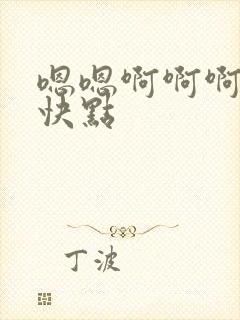 嗯嗯啊啊啊
快點
丁波